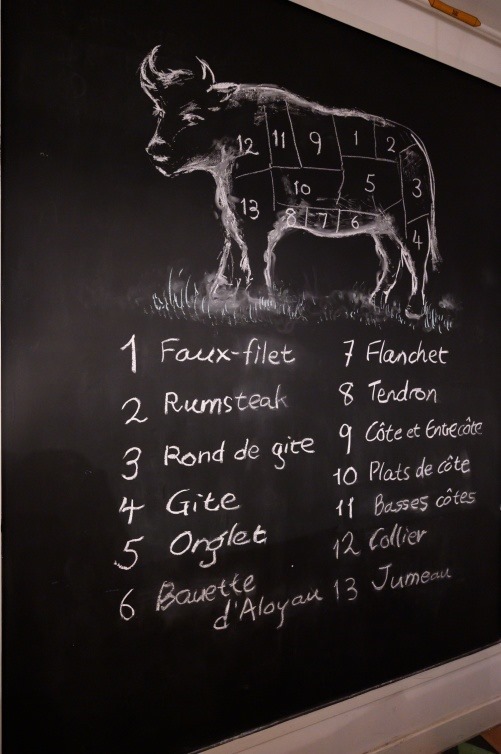 12 11 9 1 2
10 5 3
13 8 7 6 4
1 Faux-filet
2 Rumsteak
3 Rond de gite
4 Gite
5 Onglet
6 Bavette
d'Aloyau
7 Flanchet
8 Tendron
9 Côte et Entrecôte
10 Plats de côte
11 Basses côtes
12 Collier
13 Jumeau